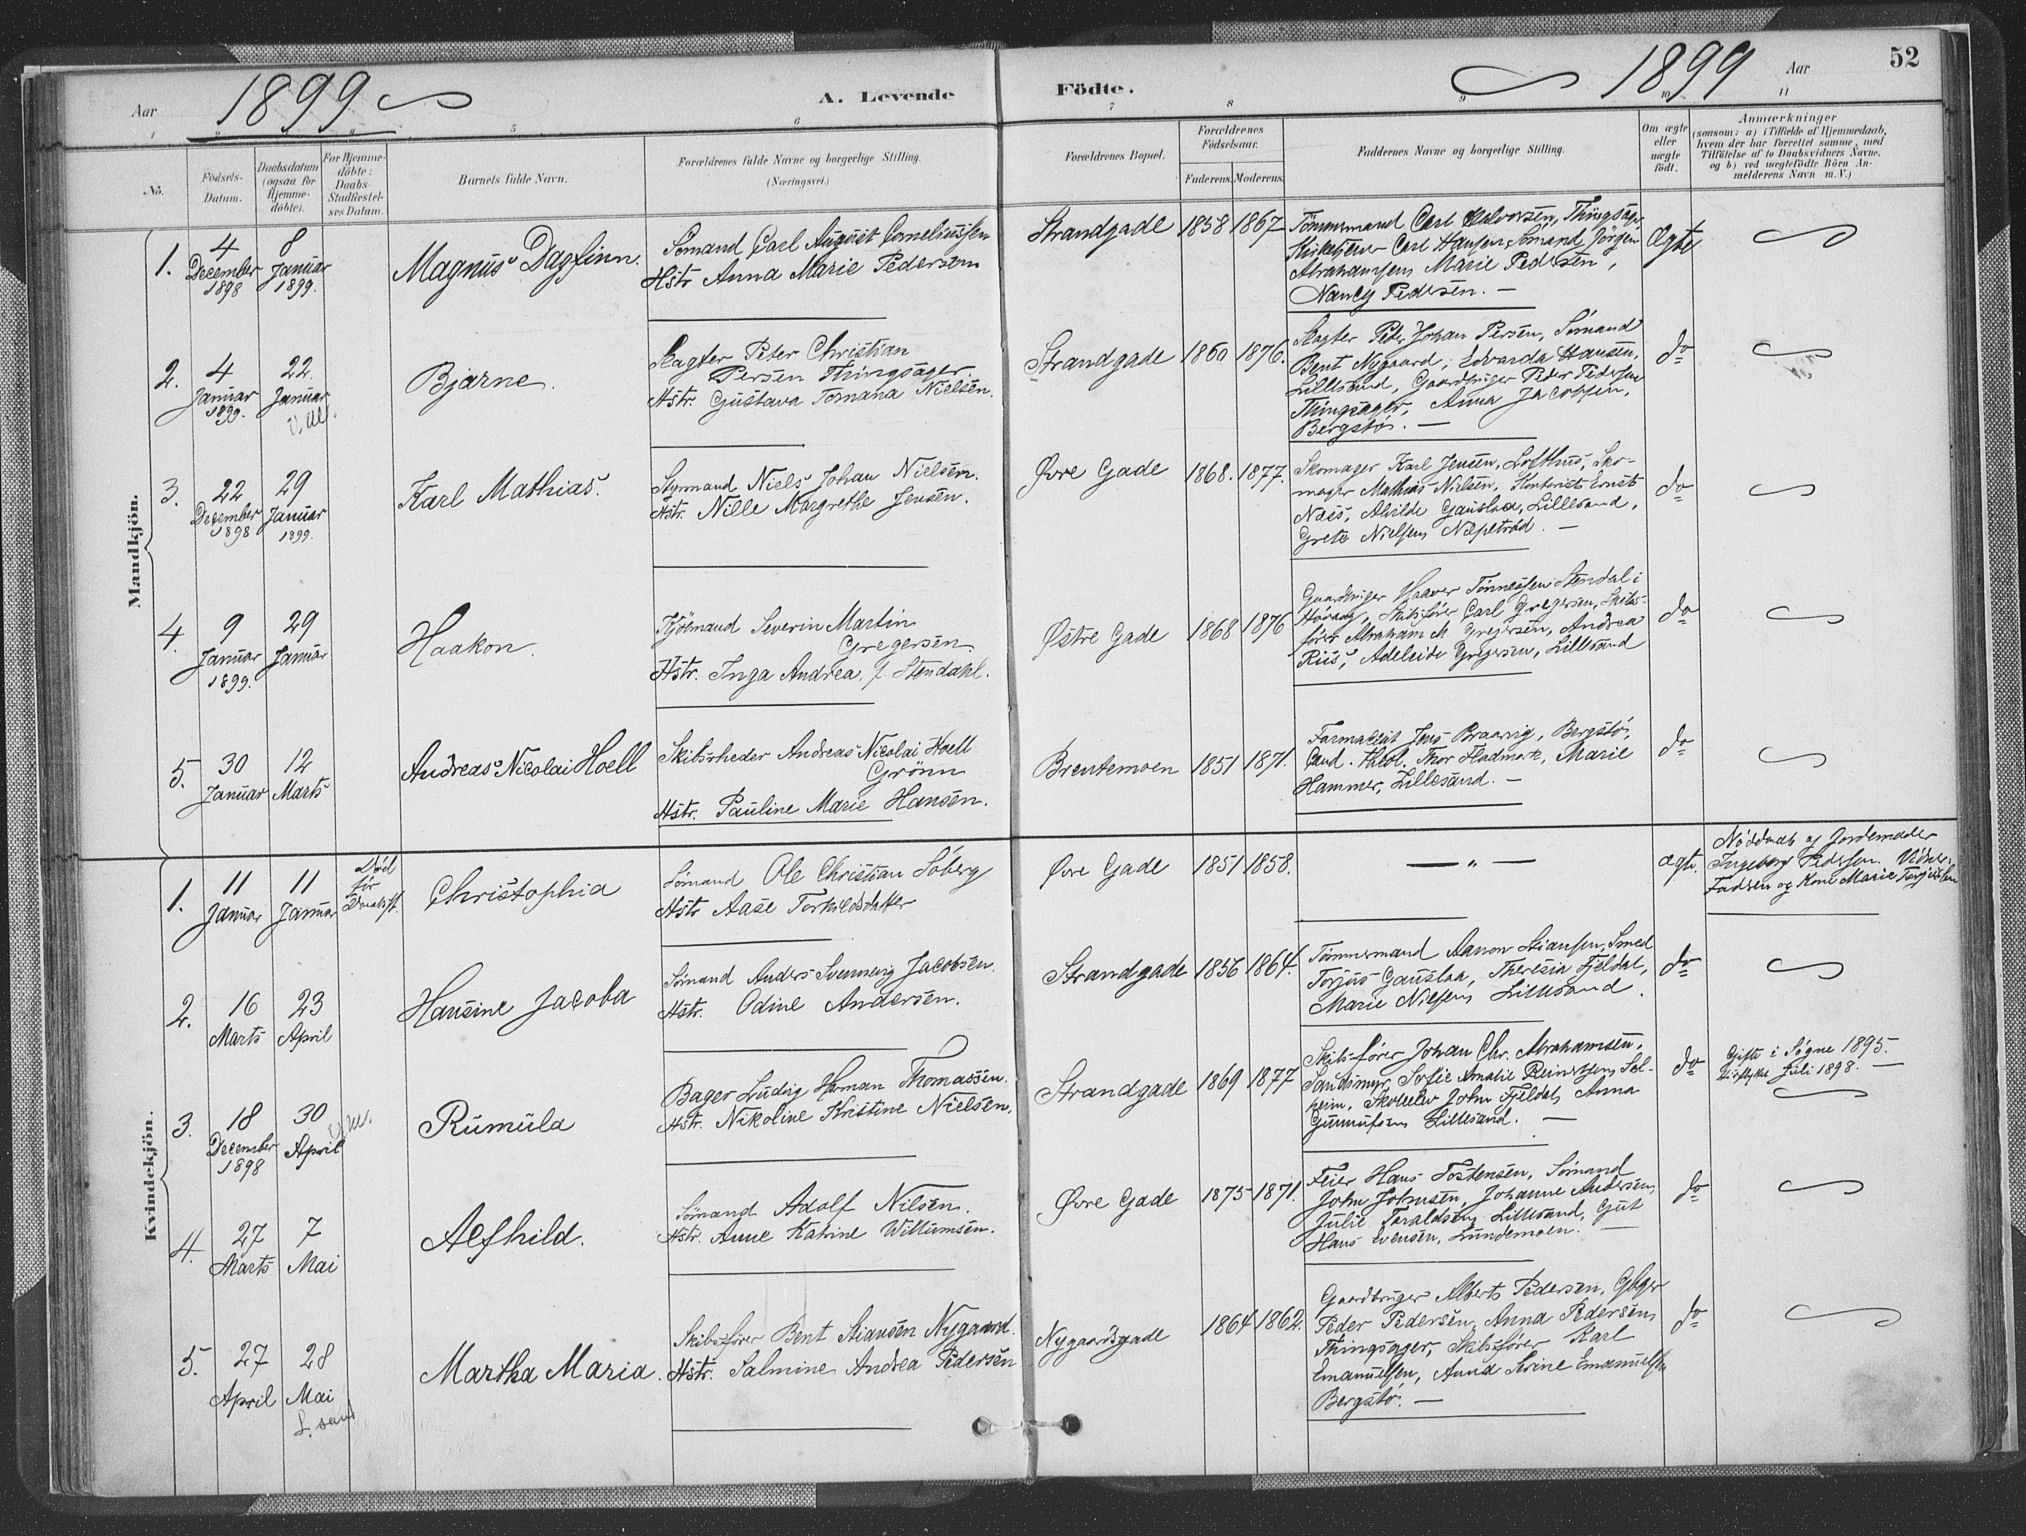 52
Aar 1899 A. Levende Födte. 1899 Aar
1 2 3 4 5 6 7 8 9 10 11
Nö.
Födsels-
Datum.
Daabsdatum
(ogsaa for
Hjemme-
döbte).
For Hjemme-
döbte:
Daabs-
Stadfæstel-
ses Datum.
Barnets fulde Navn.
Forældrenes fulde Navne og borgerlige Stilling.
(Næringsvei.)
Forældrenes Bopæl.
Forældrenes
Födselsaar.
Faderens. Moderens.
Faddernes Navne og borgerlige Stilling.
Om ægte
eller
uægte
födt.
Anmærkninger
(saasom: a) i Tilfælde af Hjemmedaab,
hvem der har forrettet samme, med
Tilföielse af to Daabsvidners Navne,
og b) ved uægtefödte Börn An-
melderens Navn m. V.)
Mandkjön.
1.
4
December
1898
8
Januar
1899.
Magnus Dagfinn.
Sömand Carl August Corneliussen
Hstr Anna Marie Pedersen
Strandgade 1858 1867
Tömmermand Carl Halvorsen, Thingsager
Carl Hansen, Sömand Jörgen
Abrahamsen, Marie Pedersen,
Nancy Pedersen. —
Ægte
2.
4
Januar
1899.
22
Januar
Bjarne.
Slagter Peter Christian
Persen Thingsager.
Hstr. Gustava Tomana Nielsen.
Strandgade 1860 1876.
Slagter Peder Johan Persen, Sömand
Bent Nygaard, Edvarda Hansen,
Lillesand, Gaardbruger Peder Pedersen
Thingsager, Anna Jacobsen,
Bergstø. —
do
3.
22
December
1898
29
Januar
1899.
Karl Mathias.
Styrmand Niels Johan Nielsen.
Hstr. Nille Margrethe Jensen.
Øvre Gade 1868. 1877.
Skomager Karl Jensen, Lofthus, Sko-
mager Mathias Nielsen, Kontorist Ernst
Næs, Alvilde Gauslaa, Lillesand,
Grete Nielsen —
do
4.
9
Januar
1899.
29
Januar
Haakon.
Severin Martin
Gregersen
Hstr. Inga Andrea f. Stendahl.
Østre Gade 1868 1876
Gaardbruger Haaver Tönnessen Stendal i
Høvaag, Skibsfører Carl Gregersen, Skibs-
fører Abraham M. Gregersen, Andrea
Riis, Adeleide Gregersen, Lillesand
do
5.
30
Januar
12
Marts
Andreas Nicolai Hoell
Skibsrheder Andreas Nicolai Hoell
Grönn
Hstr. Pauline Marie Hansen.
Brentemoen 1851 1871.
Farmaceut Jens Braavig, Bergstø,
Cand. theol. Thor Fladmark, Marie
Hammer, Lillesand. —
do
Kvindekjön.
1.
11
Januar
11
Januar
Død
før
Christophia
Sömand Ole Christian Söberg
Hstr Aase Torkildsdatter
Øvre Gade 1851 1858.
— „ —
ægte.
Nøddaab af Jordemoder
Ingeborg Pedersen. Vidner:
Faderen og Kone Marie
2.
16
Marts
23
April
Hansine Jacoba
Sømand Anders Svenning Jacobsen.
Hstr. Odine Andersen.
Strandgade 1856 1864.
Tømmermand Aanon Stiansen, Smed
Torjus Gauslaa, Theresia Fjeldal,
Marie Nilsen, Lillesand.
do
3.
18
December
1898
30
April
Rumula
Bager Ludvig Herman Thomassen.
Hstr. Nikoline Kristine Nielsen.
Strandgade 1869 1877
Skibsfører Johan Chr. Abrahamsen,
Sandsmyr, Sofie Amalie Reinertsen Sol-
heim, John Fjeldal, Anna
Gunnufsen Lillesand. —
do
Gifte i Søgne 1895.
Indflytte Juli 1898. —
4.
27
Marts
7
Mai
Alfhild.
Sömand Adolf Nilsen.
Hstr. Anne Katrine Willumsen.
Øvre Gade 1875 1871.
Feier Hans Tostensen, Sømand
John Johnsen, Johanne Andersen,
Julie Taraldsen, Lillesand, Gut
Hans Evensen, Lundemoen. —
do
5.
27
April
28
Mai
L. sand
Martha Maria.
Skibsfører Bent Stiansen Nygaard.
Hstr. Salmine Andrea Pedersen
Nygaardsgade 1864 1862.
Gaardbruger Albert Pedersen,
Peder Pedersen, Anna Pedersen,
Thingsager, Skibsfører Karl
Emanuelsen, Anna Serine Emanuelsen
Bergstø. —
do